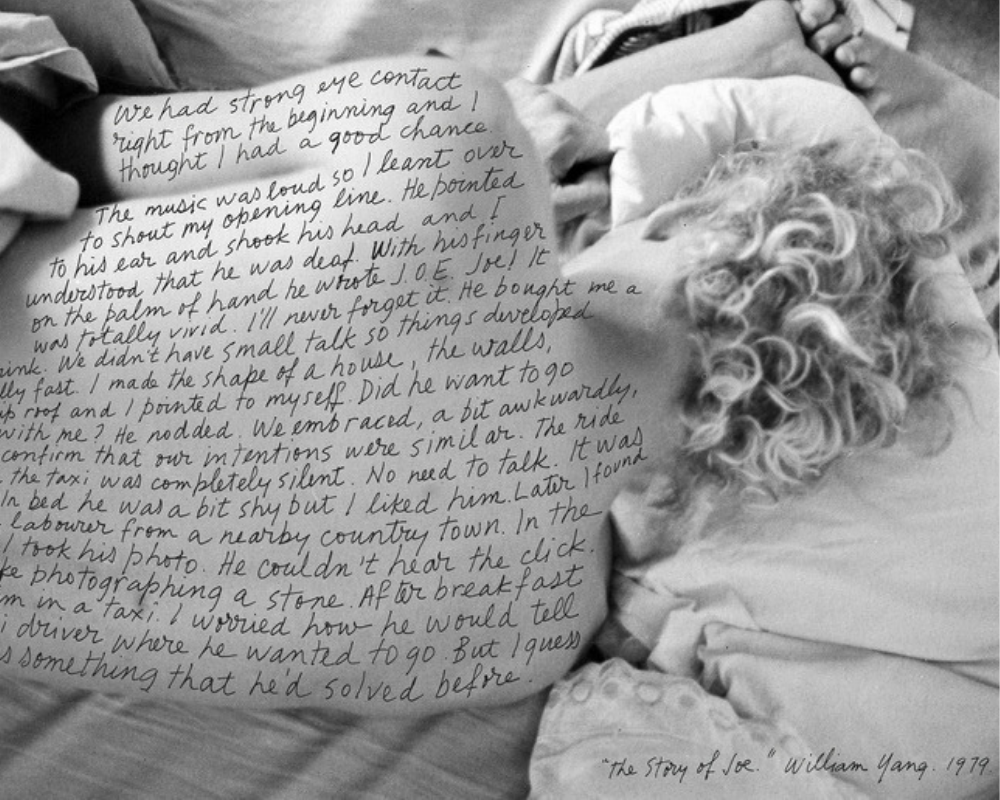 We had strong eye contact
right from the beginning and I
thought I had a good chance.
The music was loud so I leant over
to shout my opening line. He pointed
to his ear and shook his head and I
understood that he was deaf. With his finger
on the palm of hand he wrote J.O.E. Joe! It
was totally vivid. I'll never forget it. He bought me a
ink. We didn't have small talk so things developed
lly fast. I made the shape of a house, the walls,
up roof and I pointed to myself. Did he want to go
with me? He nodded. We embraced, a bit awkwardly,
confirm that our intentions were similar. The ride
the taxi was completely silent. No need to talk. It was
In bed he was a bit shy but I liked him. Later I found
labourer from a nearby country town. In the
I took his photo. He couldn't hear the click.
ke photographing a stone. After breakfast
m in a taxi. I worried how he would tell
i driver where he wanted to go. But I guess
s something that he'd solved before.
"The Story of Joe." William Yang. 1979.